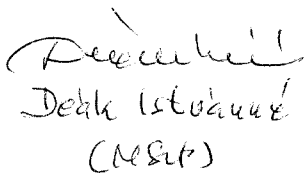 Deák Istvánné
(MSZP)